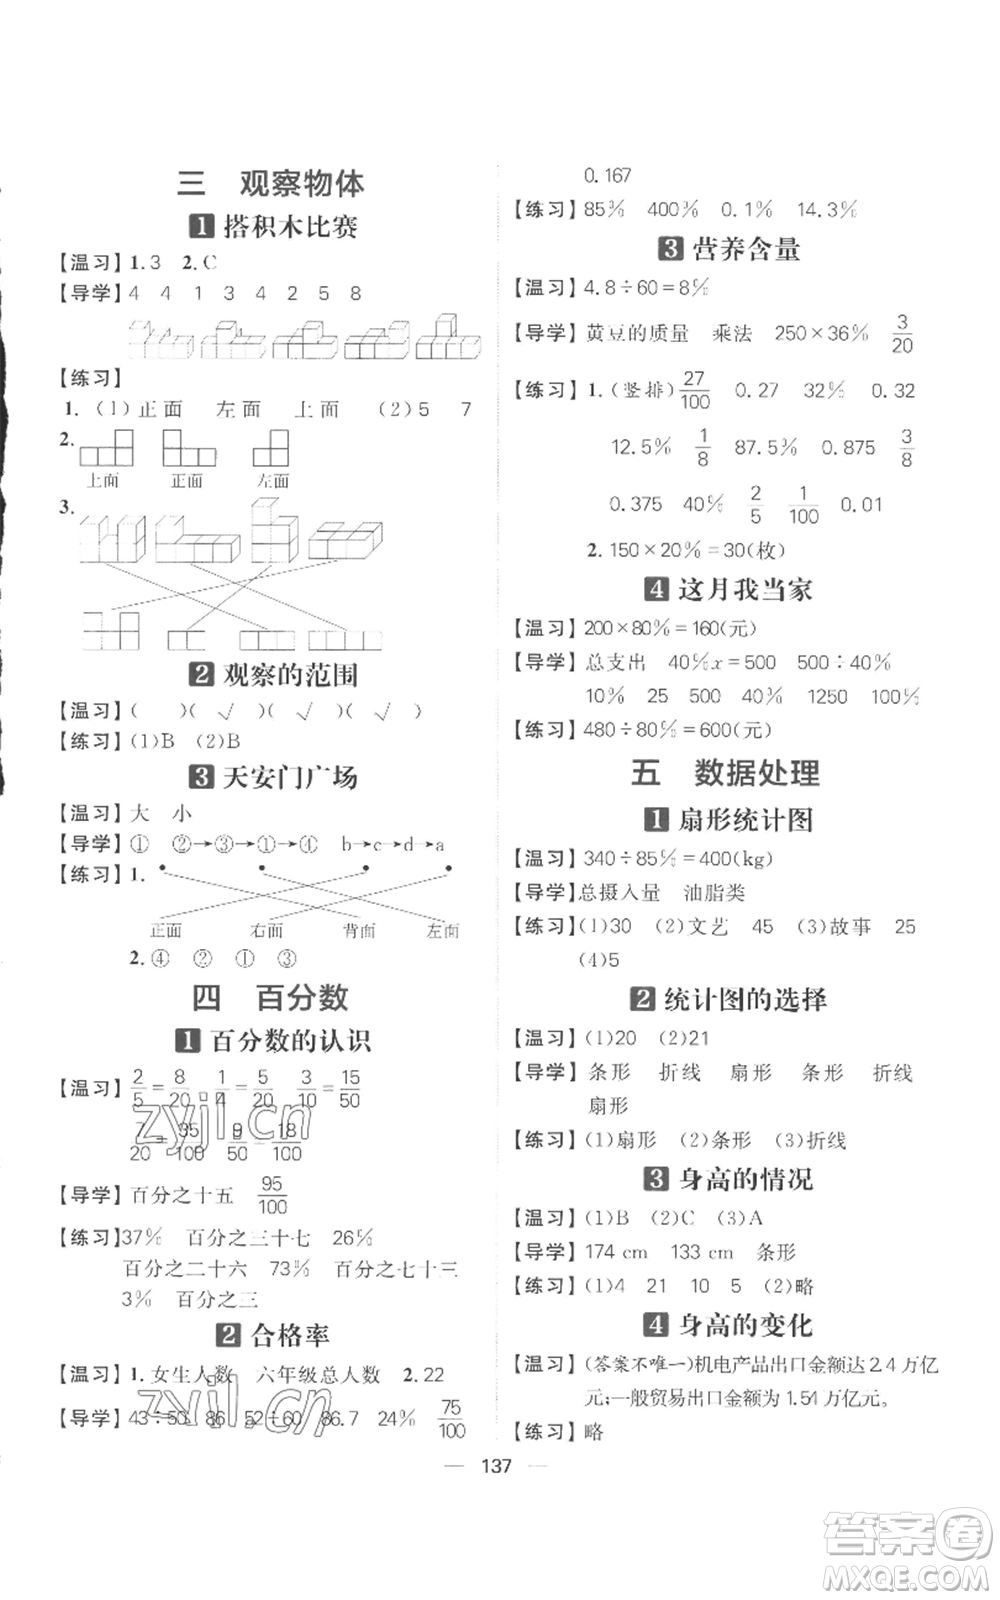 三 观察物体
1 搭积木比赛
【温习】1.3 2.C
【导学】4 4 1 3 4 2 5 8
【练习】
1.(1)正面 左面 上面 (2)5 7
2.
上面 正面 左面
3.
2 观察的范围
【温习】( )(√)(√)(√)
【练习】(1)B (2)B
3 天安门广场
【温习】大 小
【导学】① ②→③→①→④ b→c→d→a
【练习】1.
正面 右面 背面 左面
2.④ ② ① ③
四 百分数
1 百分数的认识
【温习】2/5=8/20 1/4=5/20 3/10=15/50
7/20=35/100 9/50=18/100
【导学】百分之十五 95/100
【练习】37% 百分之三十七 26%
百分之二十六 73% 百分之七十三
3% 百分之三
2 合格率
【温习】1.女生人数 六年级总人数 2.22
【导学】43÷50 86 52÷60 86.7 24% 75/100
0.167
【练习】85% 400% 0.1% 14.3%
3 营养含量
【温习】4.8÷60=8%
【导学】黄豆的质量 乘法 250×36% 3/20
【练习】1.(竖排)27/100 0.27 32% 0.32
12.5% 1/8 87.5% 0.875 3/8
0.375 40% 2/5 1/100 0.01
2.150×20%=30(枚)
4 这月我当家
【温习】200×80%=160(元)
【导学】总支出 40%x=500 500÷40%
10% 25 500 40% 1250 100%
【练习】480÷80%=600(元)
五 数据处理
1 扇形统计图
【温习】340÷85%=400(kg)
【导学】总摄入量 油脂类
【练习】(1)30 (2)文艺 45 (3)故事 25
(4)5
2 统计图的选择
【温习】(1)20 (2)21
【导学】条形 折线 扇形 条形 折线
扇形
【练习】(1)扇形 (2)条形 (3)折线
3 身高的情况
【温习】(1)B (2)C (3)A
【导学】174 cm 133 cm 条形
【练习】(1)4 21 10 5 (2)略
4 身高的变化
【温习】(答案不唯一)机电产品出口金额达2.4万亿
元;一般贸易出口金额为1.51万亿元。
【练习】略
— 137 —
zyjl.cn
zyjl.cn
答案卷
MXQE.COM